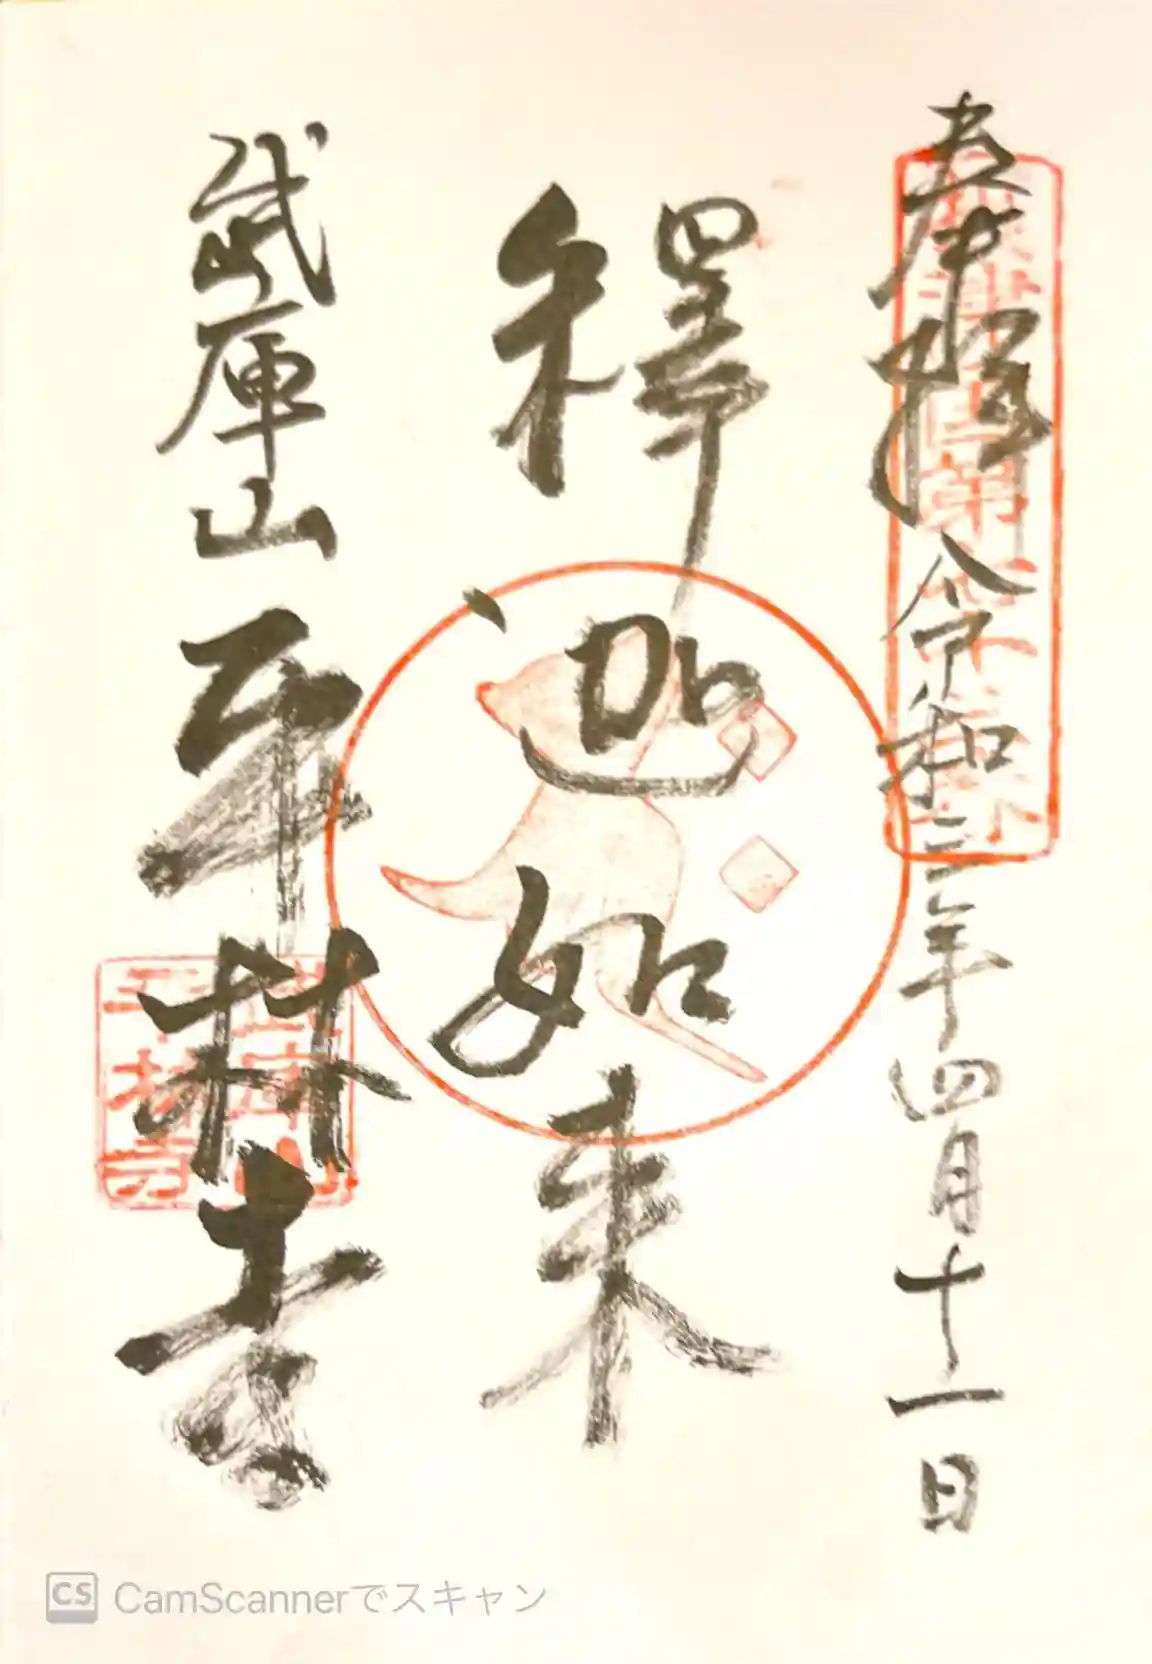 奉拝 令和三年四月十一日
釋迦如来
武庫山 平林寺
武庫山
平林寺
CS CamScannerでスキャン